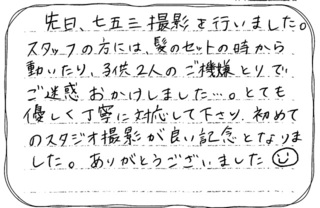 先日、七五三撮影を行いました。
スタッフの方には、髪のセットの時から
動いたり、子供2人のご機嫌とりで
ご迷惑おかけしました…。とても
優しく丁寧に対応して下さり、初めて
のスタジオ撮影が良い記念となりま
した。ありがとうございました☺